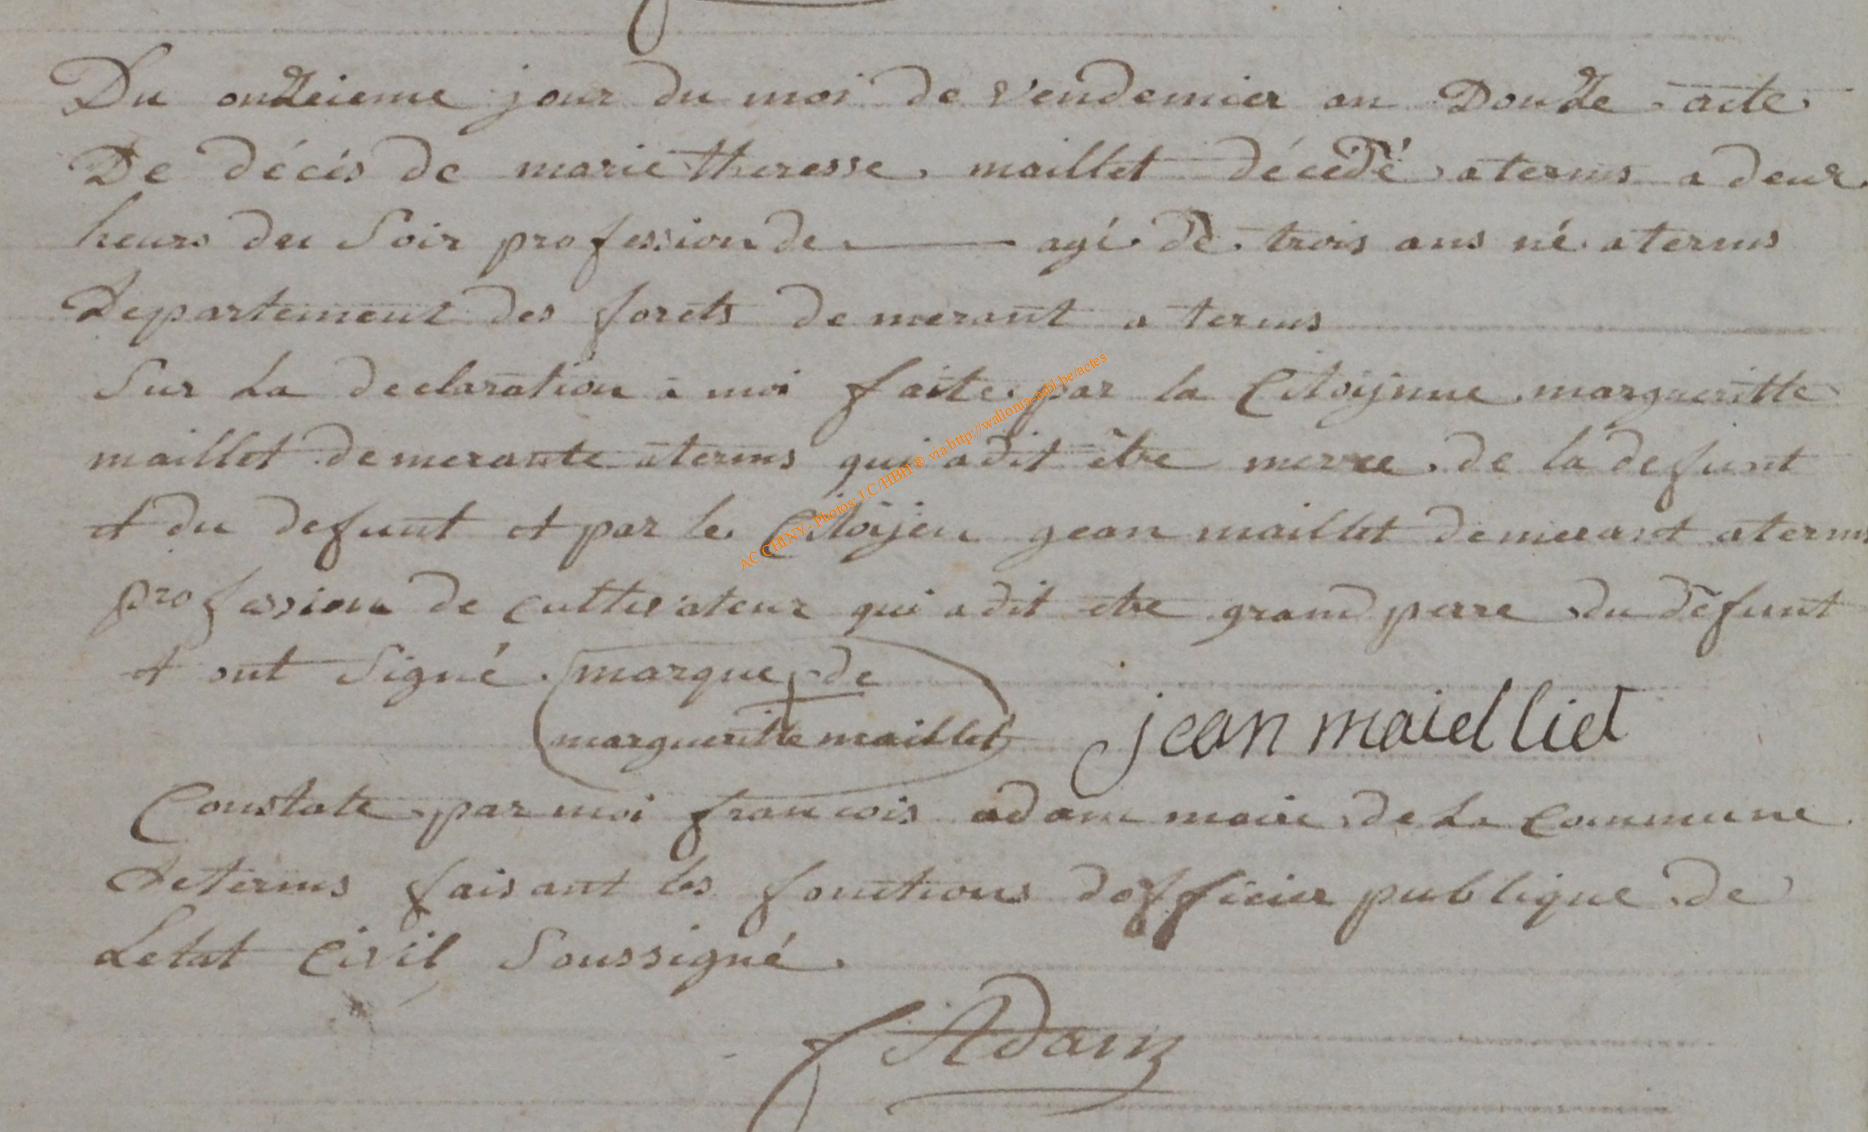 Du onzeieme jour du moi de vendemier an Douze acte
De décés de marie theresse maillet décédé a termes a deux
heurs du Soir profession de ——— agé de trois ans né a termes
Departement des forets demerant a termes
Sur La declaration a moi faite par la Citoijnne margueritte
maillet demerante a termes qui a dit etre merre de la defunt
et du defunt et par le Citoijen gean maillet demerant a termes
profession de cultivateur qui a dit etre grand perre du defunt
et ont Signé marque de
margueritte maillet jean maielliet
Constate par moi francois adam maire de La Commune
de termes faisant les fonctions dofficier publique de
Letat Civil Soussigné
f Adam
AC CHINY - Photos J.C/HBH © via http://wallonia-asbl.be/actes